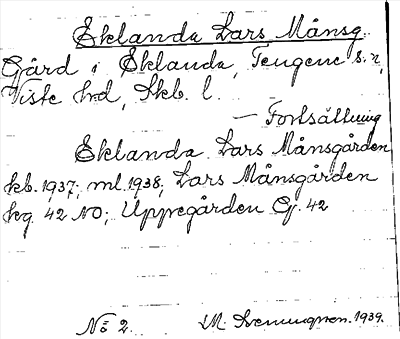 Eklanda Lars Månsg.
Gård i Eklanda, Tengene s:n,
Viste hrd, Skb. l.
— Fortsättning
Eklanda Lars Månsgården
kb. 1937; ml. 1938; Lars Månsgården
hg. 42 NO; Uppegården Gj. 42
No 2. M. Svenungson. 1939.